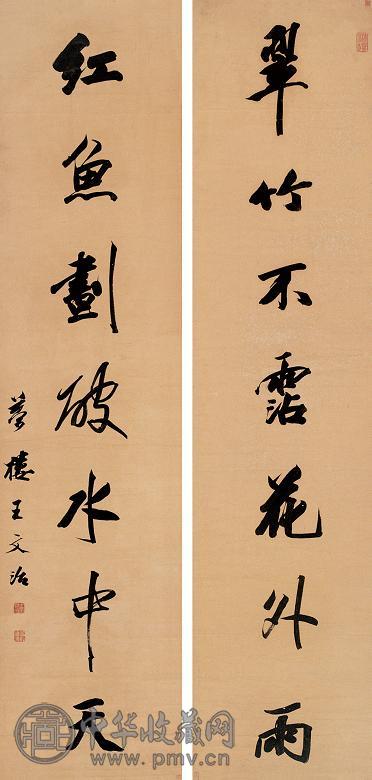 翠竹不霑花外雨
红鱼劃破水中天
夢樓王文治
中华收藏网
www.pmv.cn